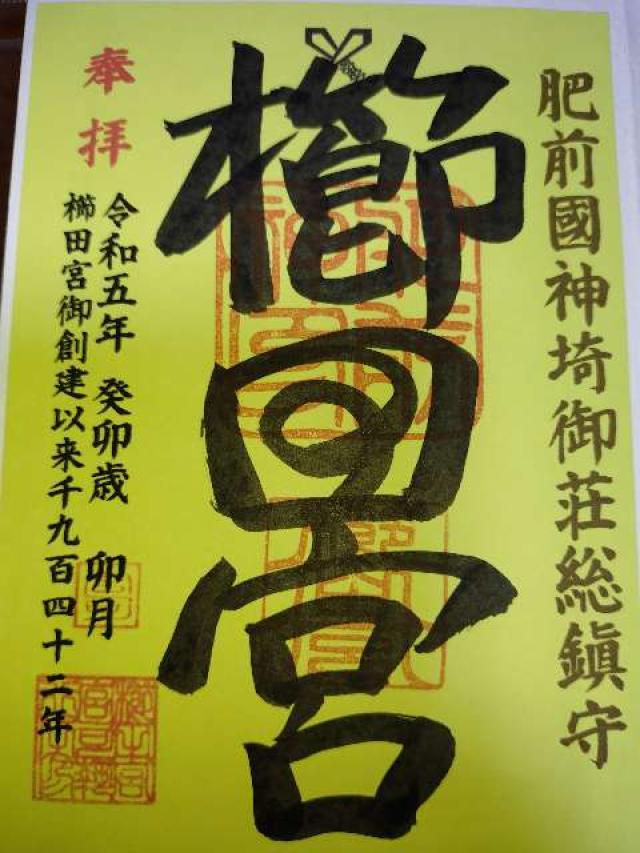 肥前國神埼御荘総鎮守
櫛田宮
奉拝
令和五年 癸卯歳 卯月
櫛田宮御創建以来千九百四十二年